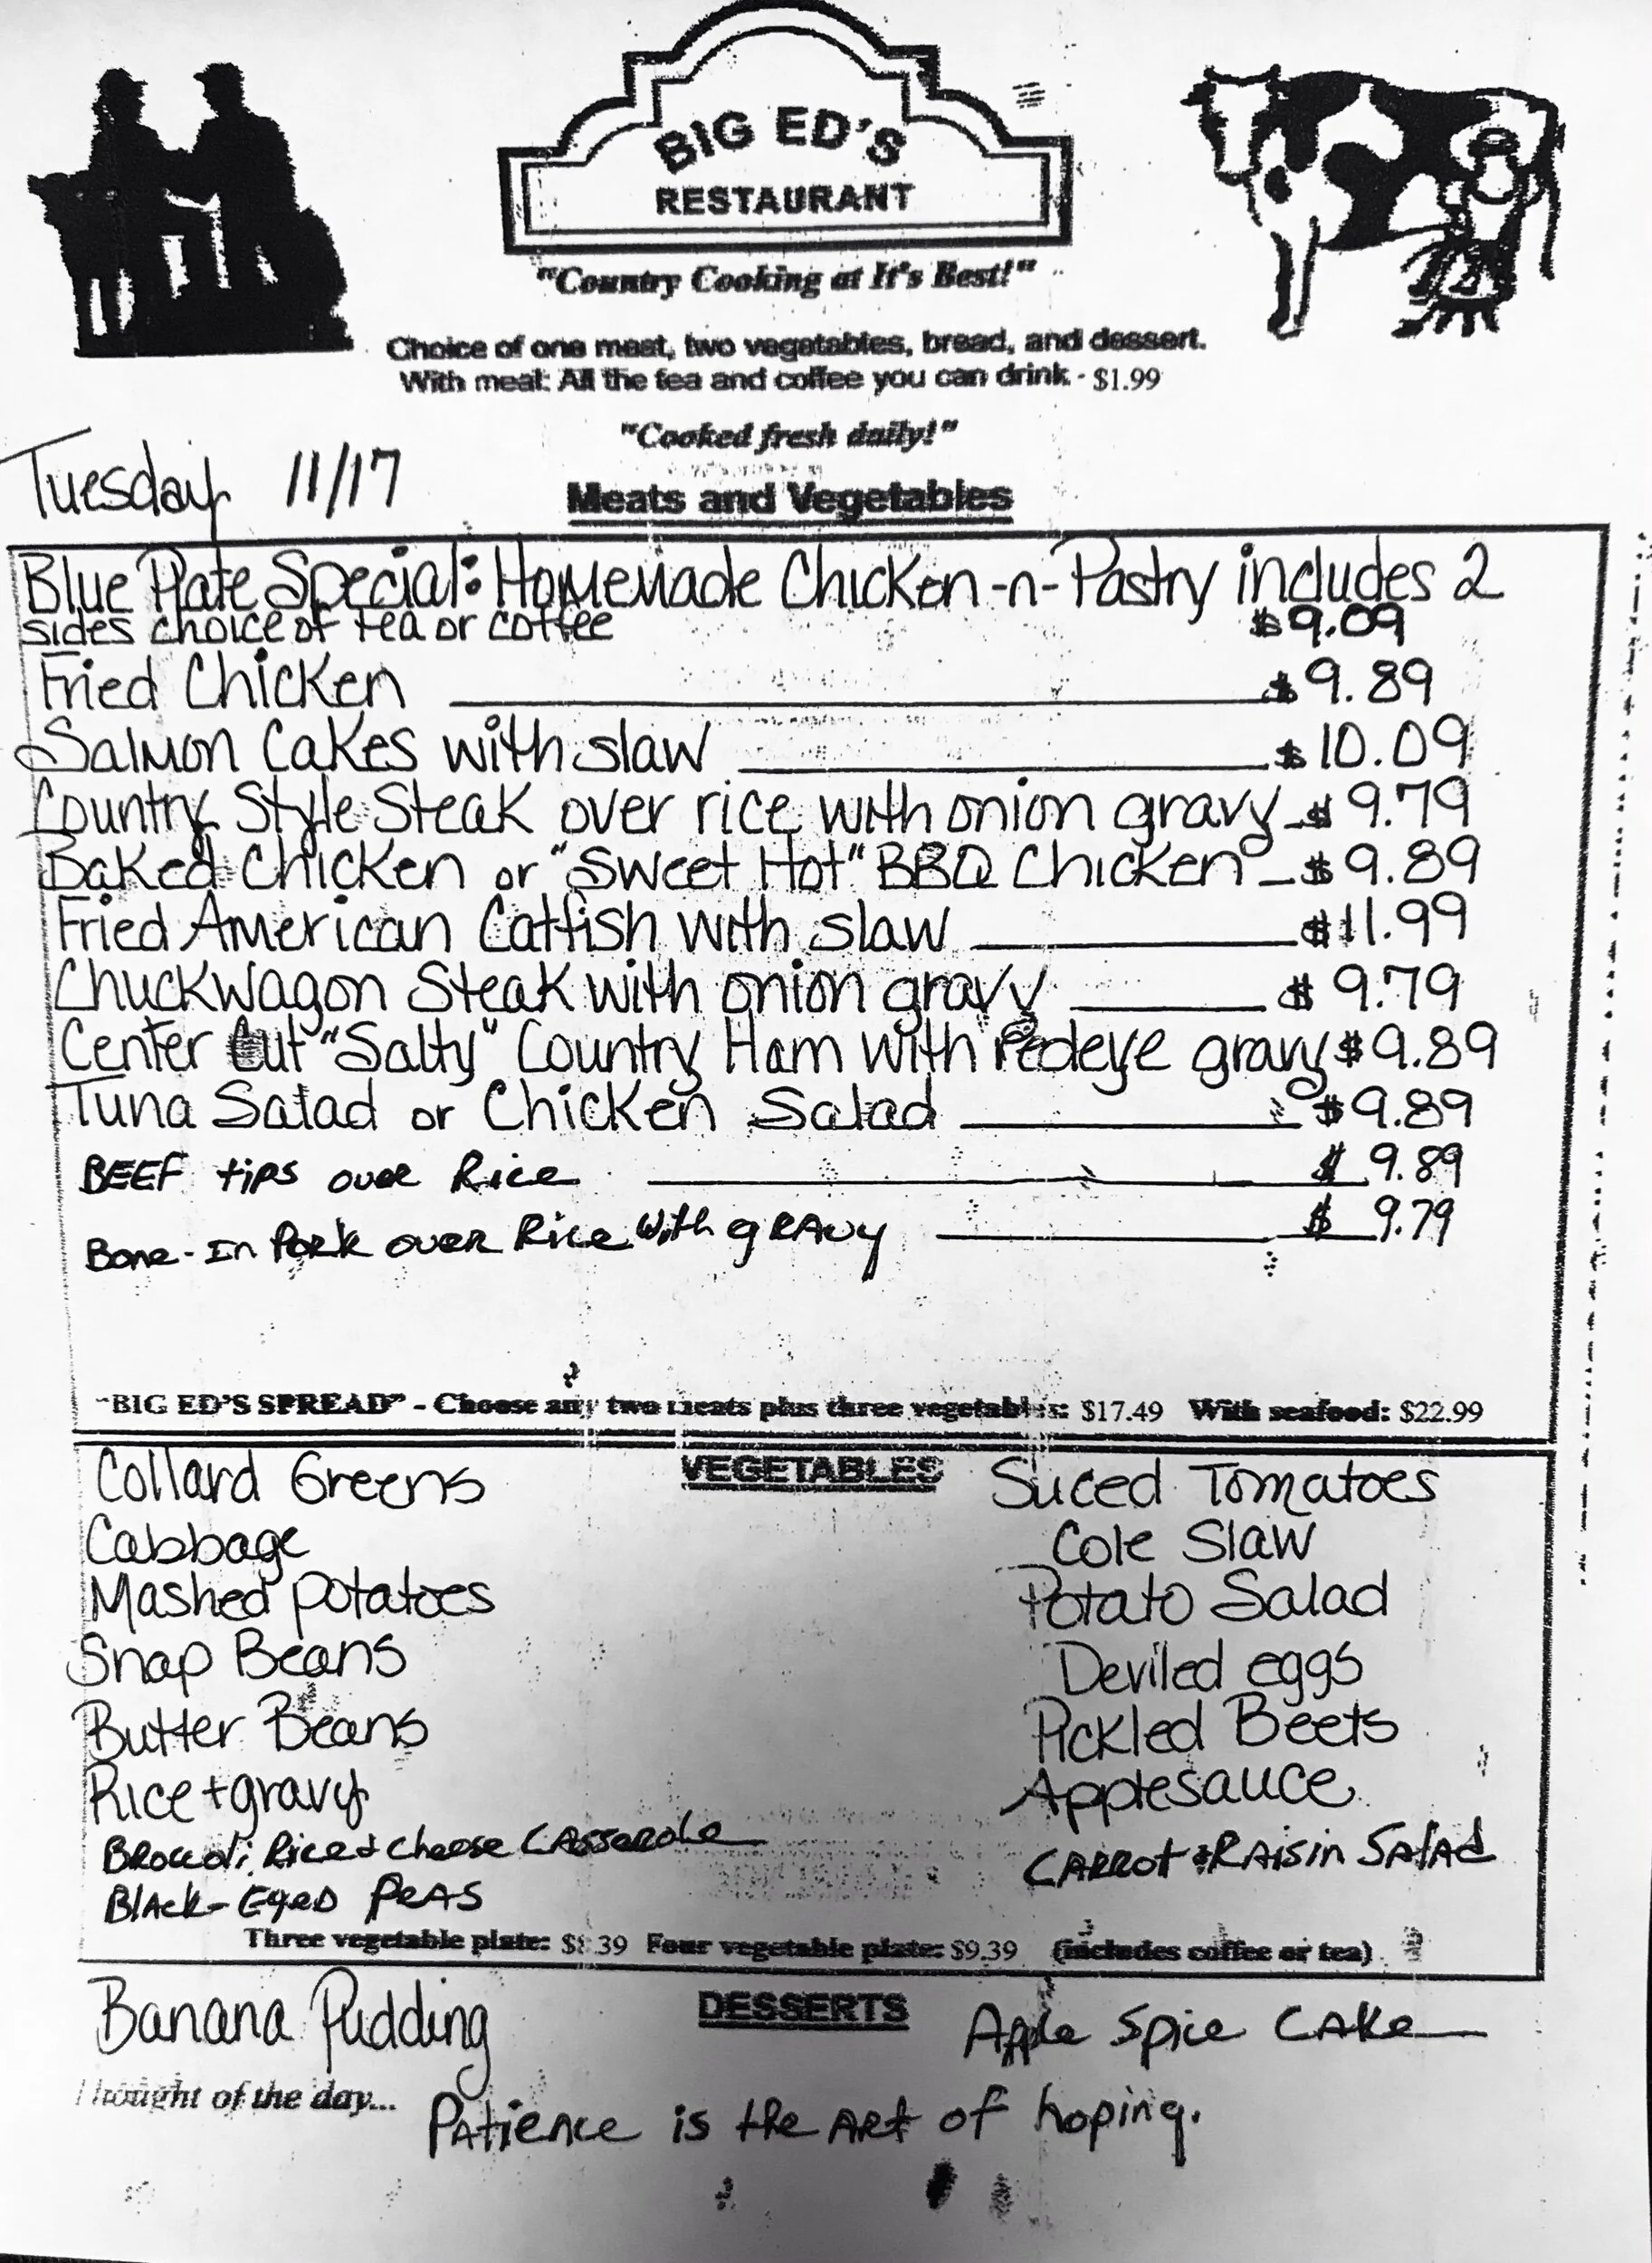 BIG ED'S
RESTAURANT
"Country Cooking at It's Best!"
Choice of one meat, two vegetables, bread, and dessert.
With meal: All the tea and coffee you can drink - $1.99
"Cooked fresh daily!"
Tuesday 11/17
Meats and Vegetables
Blue Plate Special: Homemade Chicken-n-Pastry includes 2
sides choice of tea or coffee $9.09
Fried Chicken $9.89
Salmon Cakes with slaw $10.09
Country Style Steak over rice with onion gravy $9.79
Baked Chicken or "Sweet Hot" BBQ Chicken $9.89
Fried American Catfish with slaw $11.99
Chuckwagon Steak with onion gravy $9.79
Center Cut "Salty" Country Ham with redeye gravy $9.89
Tuna Salad or Chicken Salad $9.89
BEEF tips over Rice $9.89
Bone-In Pork over Rice with gRAvy $9.79
"BIG ED'S SPREAD" - Choose any two meats plus three vegetables: $17.49 With seafood: $22.99
VEGETABLES
Collard Greens
Cabbage
Mashed potatoes
Snap Beans
Butter Beans
Rice + gravy
Broccoli, Rice + Cheese CAsserole
BlAck-EyeD PeAS
Sliced Tomatoes
Cole Slaw
Potato Salad
Deviled eggs
Pickled Beets
Applesauce
CARRot + RAisin SAlAd
Three vegetable plate: $8.39 Four vegetable plate: $9.39 (includes coffee or tea)
DESSERTS
Banana Pudding
Apple Spice CAke
Thought of the day... PAtience is the ARt of hoping.